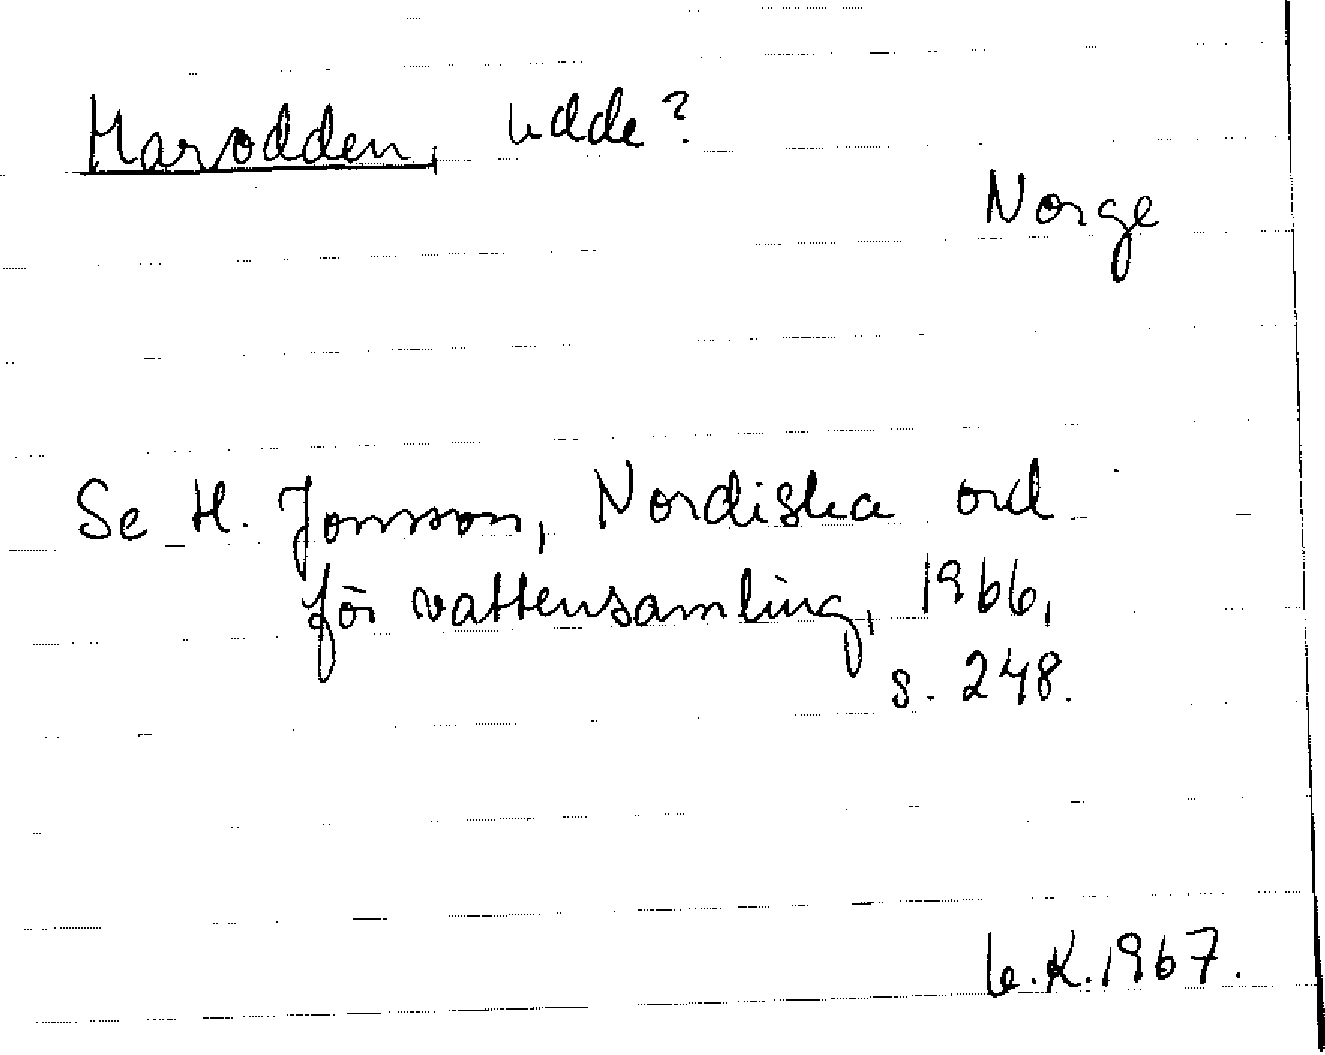 Harodden, udde?
Norge
Se H. Jonsson, Nordiska ord
för vattensamling, 1966,
s. 248.
K. 1967.